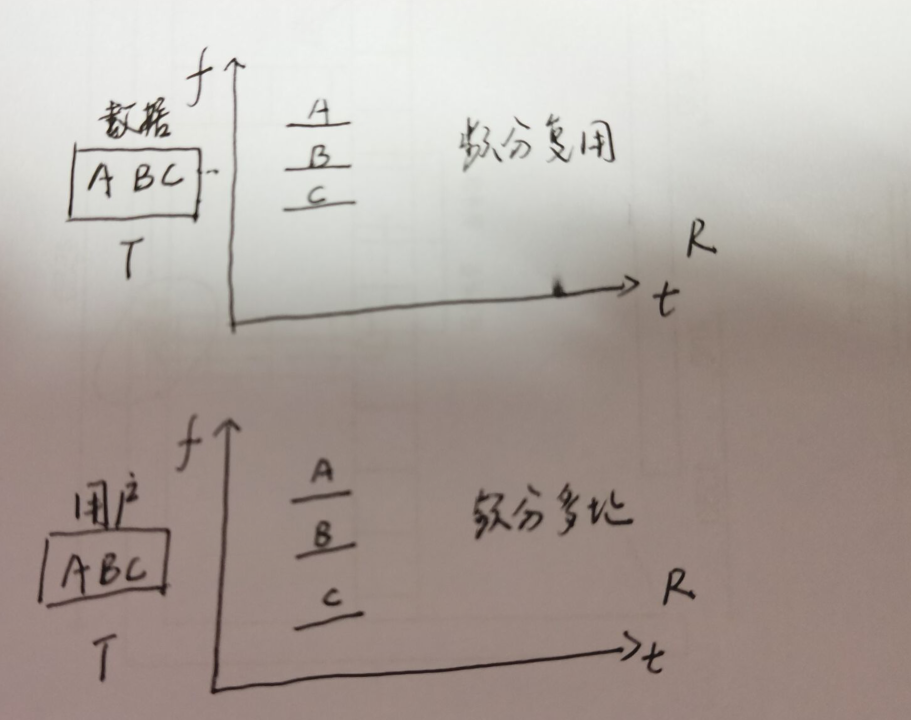 f
数据
A
B
C
频分复用
A BC
T
R
t
f
用户
A
B
C
频分多址
ABC
T
R
t